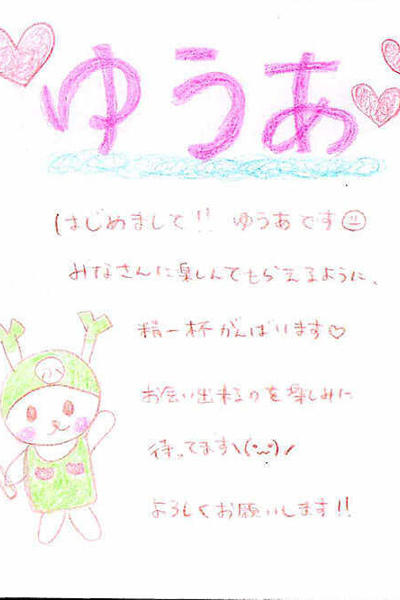 ゆうあ
はじめまして!! ゆうあです☺
みなさんに楽しんでもらえるように、
精一杯がんばります♡
お会い出来るのを楽しみに
待ってます\(^ω^)/
よろしくお願いします!!